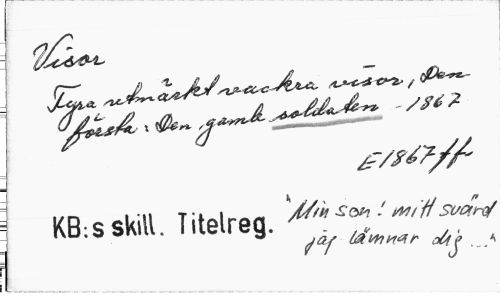 Visor
Fyra utmärkt vackra visor, Den
första: Den gamle soldaten - 1867
E 1867 ff
"Min son! mitt svärd
KB:s skill. Titelreg.
jag lämnar dig ..."